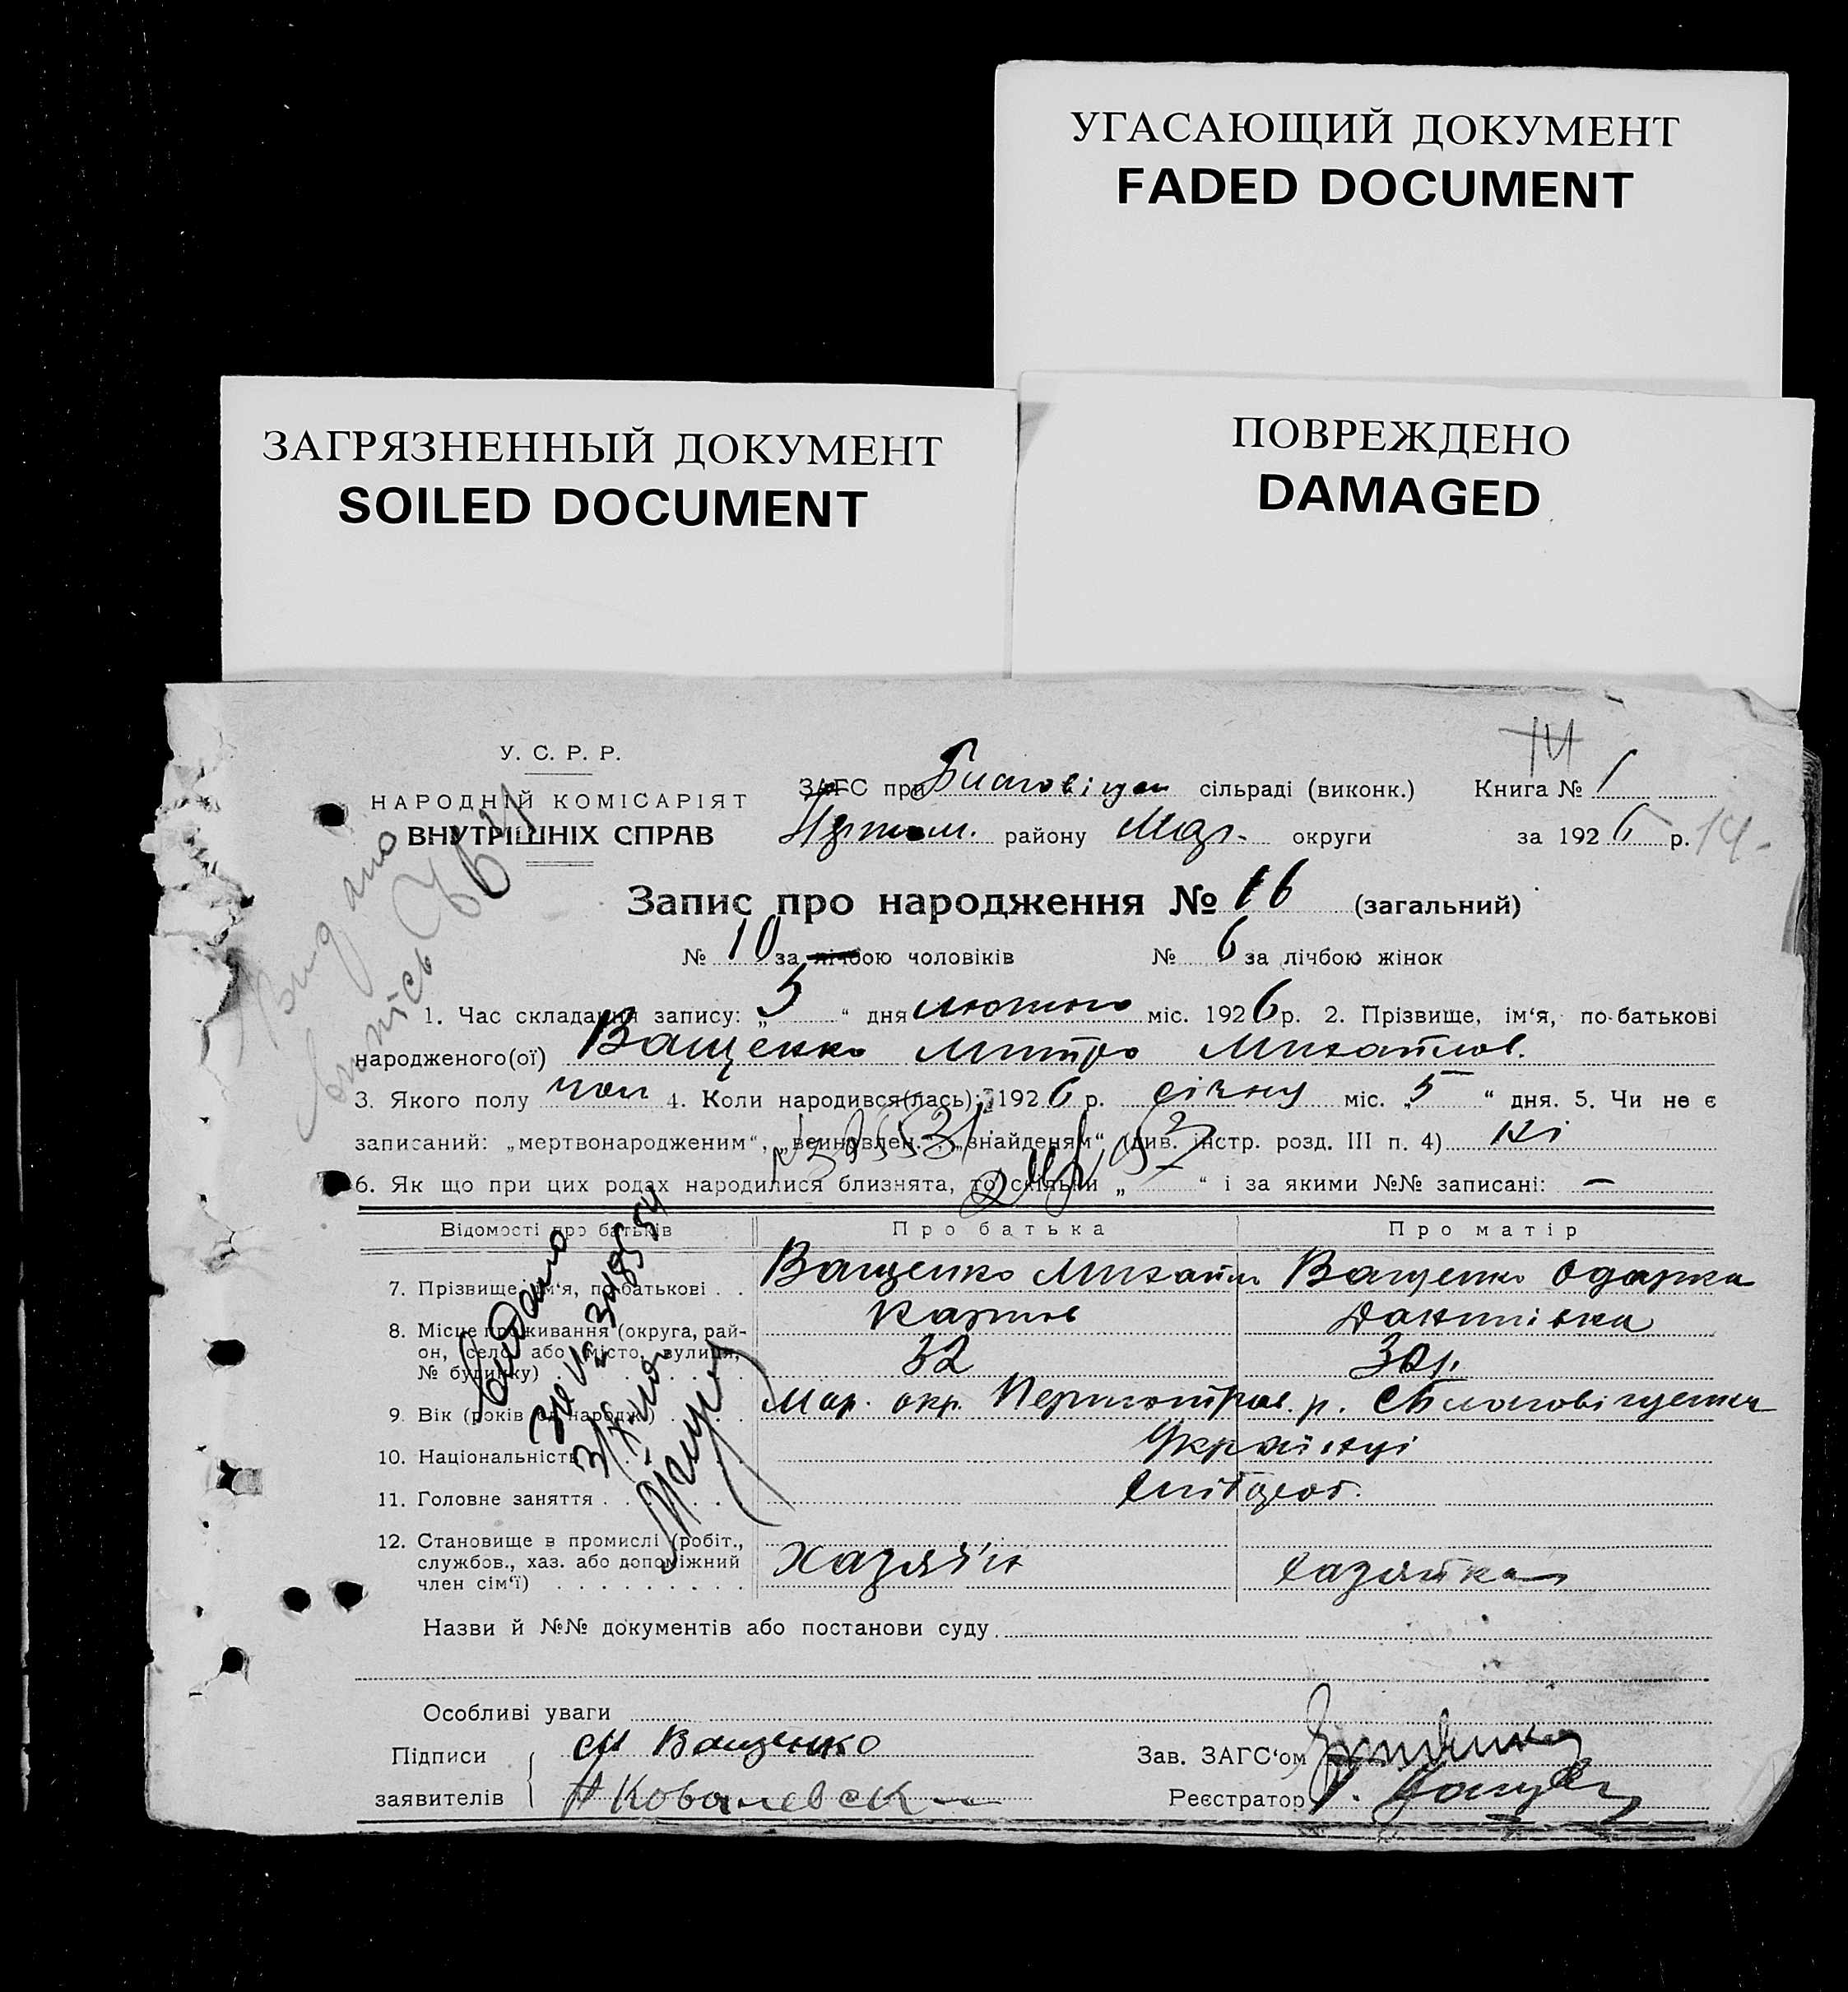 УГАСАЮЩИЙ ДОКУМЕНТ
FADED DOCUMENT
ЗАГРЯЗНЕННЫЙ ДОКУМЕНТ
SOILED DOCUMENT
ПОВРЕЖДЕНО
DAMAGED
У. С. Р. Р.
НАРОДНІЙ КОМІСАРІЯТ
ВНУТРІШНІХ СПРАВ
ЗАГС при сільраді (виконк.) Книга № 1
району Мар. округи за 1926 р. 14
Запис про народження № 16 (загальний)
№ 10 за лічбою чоловіків № 6 за лічбою жінок
1. Час складання запису: „ 5 “ дня лютого міс. 1926 р. 2. Прізвище, ім‘я, по-батькові
народженого(ої) Ващенко Митро Михайлов.
3. Якого полу чол 4. Коли народився(лась): 1926 р. січня міс. „ 5 “ дня. 5. Чи не є
записаний: „мертвонародженим“, „всиновлен.“, „знайденям“ (див. інстр. розд. III п. 4) ні
6. Як що при цих родах народилися близнята, то скільки „ “ і за якими №№ записані: —
Відомості про батьків Про батька Про матір
7. Прізвище, ім‘я, по-батькові . . Ващенко Михайло Ващенко Одарка
8. Місце проживання (округа, рай-
он, село або місто, вулиця,
№ будинку) Карпов Данилівна
32 30р.
9. Вік (років од народж.) Мар. окр. р. с Благовіщенка
10. Національність Українці
11. Головне заняття . . . хлібороб.
12. Становище в промислі (робіт.,
службов., хаз. або допоміжний
член сім‘ї) Хазяїн хазяйка
Назви й №№ документів або постанови суду
Особливі уваги
Підписи М Ващенко Зав. ЗАГС‘ом
заявителів Ковалевск Реєстратор
Видано